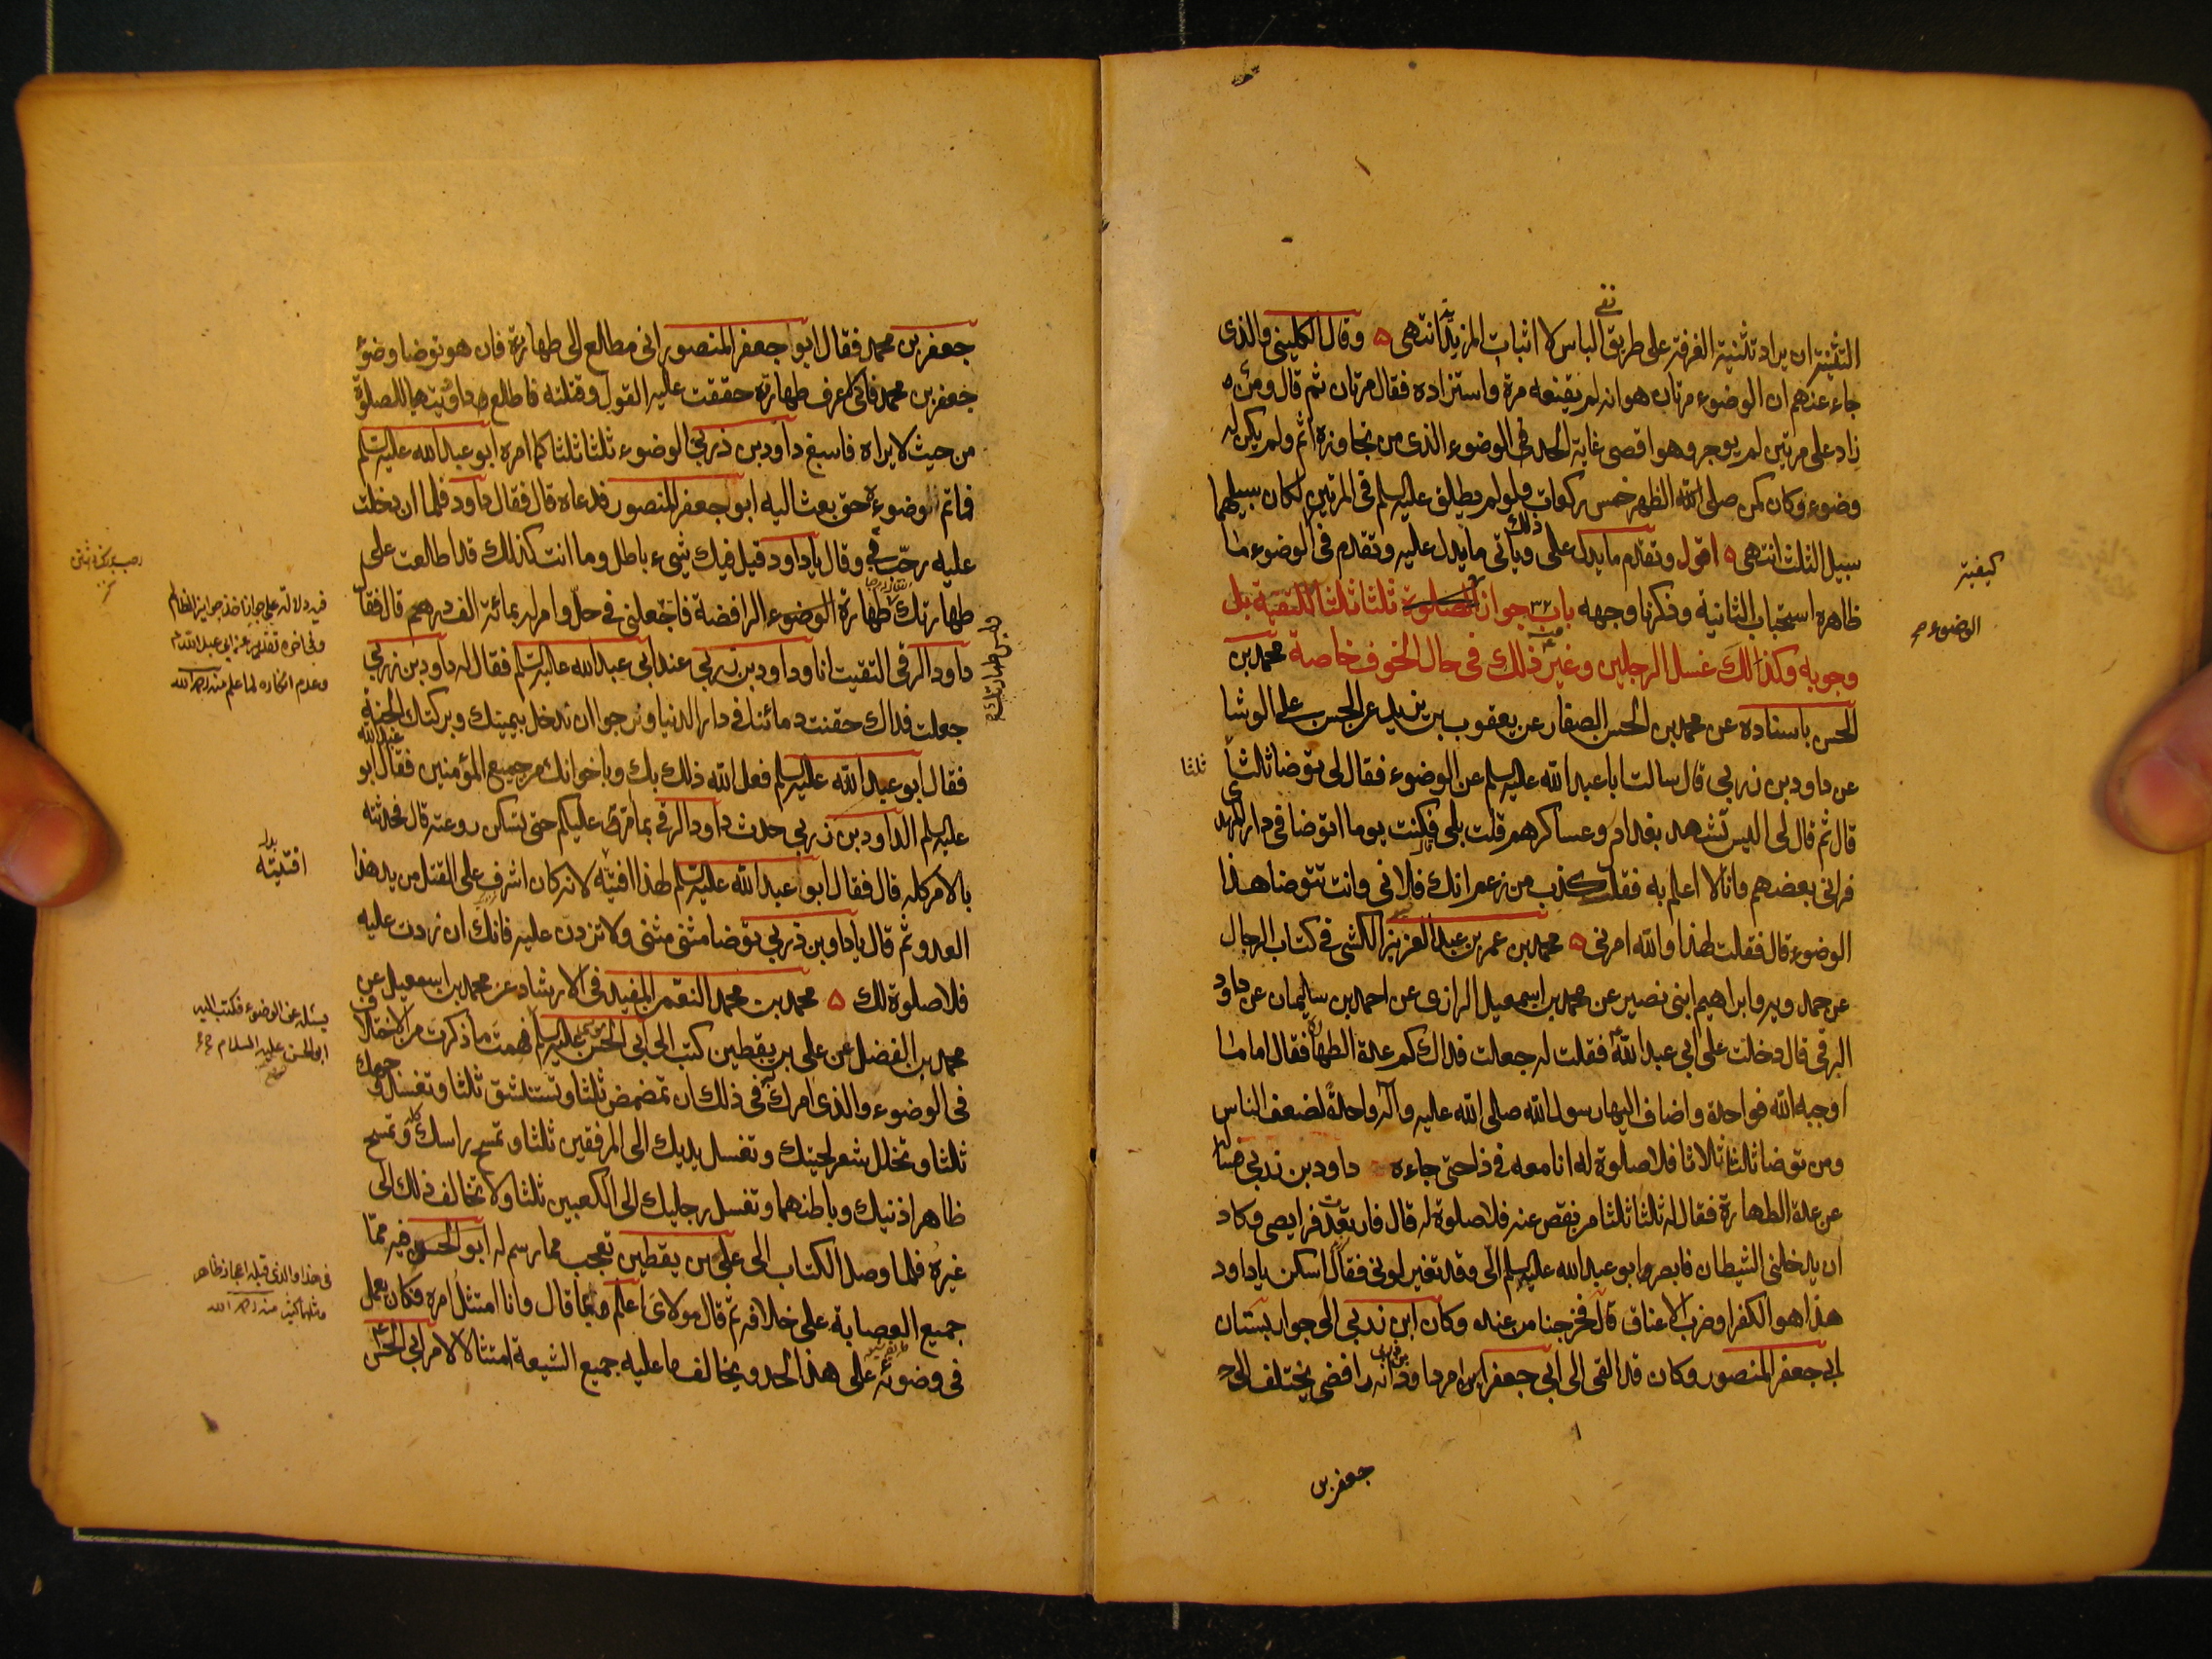 التثنية ان يراد تثنية الغرفة على طريق نفى الباس لا اثبات المزية انتهى ه وقال الكلينى والذى
جاء عنهم ان الوضوء مرتان هو انه لم يقنعه مرة واستزاده فقال مرتان ثم قال ومن
زاد على مرتين لم يوجر وهو اقصى غاية الحد فى الوضوء الذى من تجاوزه اثم ولم يكن له
وضوء وكان كمن صلى الظهر خمس ركعات ولو لم يطلق عليه السلم فى المرتين لكان سبيلهما
سبيل الثلث انتهى ه اقول وتقدم ما يدل على ذلك وياتى ما يدل عليه وتقدم فى الوضوء ما
ظاهره استحباب الثانية وذكرنا وجهه باب ٣٢ جواز ثلثا ثلثا للتقية بل
وجوبه وكذالك غسل الرجلين وغير ذلك فى حال الخوف خاصة محمد بن
الحسن باسناده عن محمد بن الحسن الصفار عن يعقوب بن يزيد عن الحسن بن على الوشا
عن داود بن زربى قال سالت ابا عبد الله عليه السلم عن الوضوء فقال لى توضا ثلثا ثلثا
قال ثم قال لى اليس تشهد بغداد وعساكرهم قلت بلى فكنت يوما اتوضا فى دار المهدى
فرانى بعضهم وانا لا اعلم به فقال كذب من زعم انك فلانى وانت تتوضا هذا
الوضوء قال فقلت لهذا والله امرنى ه محمد بن عمر بن عبد العزيز الكشى فى كتاب الرجال
عن حمدويه وابراهيم ابنى نصير عن محمد بن اسمعيل الرازى عن احمد بن سليمان عن داود
الرقى قال دخلت على ابى عبد الله فقلت له جعلت فداك كم عدة الطهارة فقال اما ما
اوجبه الله فواحدة واضاف اليها رسول الله صلى الله عليه وآله واحدة لضعف الناس
ومن توضا ثلثا ثلاثا فلا صلوة له انا معه فى ذا حتى جاءه داود بن زربى
عن عدة الطهارة فقال له ثلثا ثلثا من نقص عنه فلا صلوة له قال فارتعدت فرايصى وكاد
ان يدخلنى الشيطان فابصر ابو عبد الله عليه السلم الى وقد تغير لونى فقال اسكن يا داود
هذا هو الكفر او ضرب الاعناق قال فخرجنا من عنده وكان ابن زربى الى جوار بستان
ابى جعفر المنصور وكان قد القى الى ابى جعفر امر داود بن زربى انه رافضى يختلف الى
جعفر بن
كيفية
الوضوء
ثلثا
جعفر بن محمد فقال ابو جعفر المنصور انى مطالع الى طهارته فان هو توضا وضوء
جعفر بن محمد فانى لاعرف طهارته حققت عليه القول وقتلته فاطلع وداود يتهيا للصلوة
من حيث لا يراه فاسبغ داود بن زربى الوضوء ثلثا ثلثا كما امره ابو عبد الله عليه السلم
فما تم وضوءه حتى بعث اليه ابو جعفر المنصور فدعاه قال فقال داود فلما ان دخلت
عليه رحب بى وقال يا داود قيل فيك شىء باطل وما انت كذلك قد اطلعت على
طهارتك طهارة الرافضة فاجعلنى فى حل وامر له بمائة الف درهم قال فقال
داود الرقى التقيت انا وداود بن زربى عند ابى عبد الله عليه السلم فقال له داود بن زربى
جعلت فداك حقنت دمائنا فى دار الدنيا ونرجو ان ندخل بيمينك وبركتك الجنة
فقال ابو عبد الله عليه السلم فعل الله ذلك بك وباخوانك من جميع المؤمنين فقال ابو عبد الله
عليه السلم لداود بن زربى حدث داود الرقى بما مر عليكم حتى تسكن روعته قال فحدثته
بالامر كله قال فقال ابو عبد الله عليه السلم لهذا افتيته لانه كان اشرف على القتل من يد هذا
العدو ثم قال يا داود بن زربى توضا مثنى مثنى ولا تزدن عليه فانك ان زدت عليه
فلا صلوة لك ه محمد بن محمد النعمن المفيد فى الارشاد عن محمد بن اسمعيل عن
محمد بن الفضل عن على بن يقطين كتب الى ابى الحسن موسى عليه السلم فهمت ما ذكرت من الاختلاف
فى الوضوء والذى امرك به فى ذلك ان تمضمض ثلثا وتستنشق ثلثا وتغسل وجهك
ثلثا وتخلل شعر لحيتك وتغسل يديك الى المرفقين ثلثا وتمسح راسك كله وتمسح
ظاهر اذنيك وباطنهما وتغسل رجليك الى الكعبين ثلثا ولا تخالف ذلك الى
غيره فلما وصل الكتاب الى على بن يقطين تعجب مما رسم له ابو الحسن فيه مما
جميع العصابة على خلافه ثم قال مولاى اعلم بما قال وانا امتثل امره فكان يعمل
فى وضوئه على هذا الحد ويخالف ما عليه جميع الشيعة امتثالا لامر ابى الحسن
فيه دلالة على جواز اخذ جوايز الظالم
وعدم انكاره لما علم منه رحمه الله
افتيته
يسئله عن الوضوء فكتب اليه
ابو الحسن عليه السلام